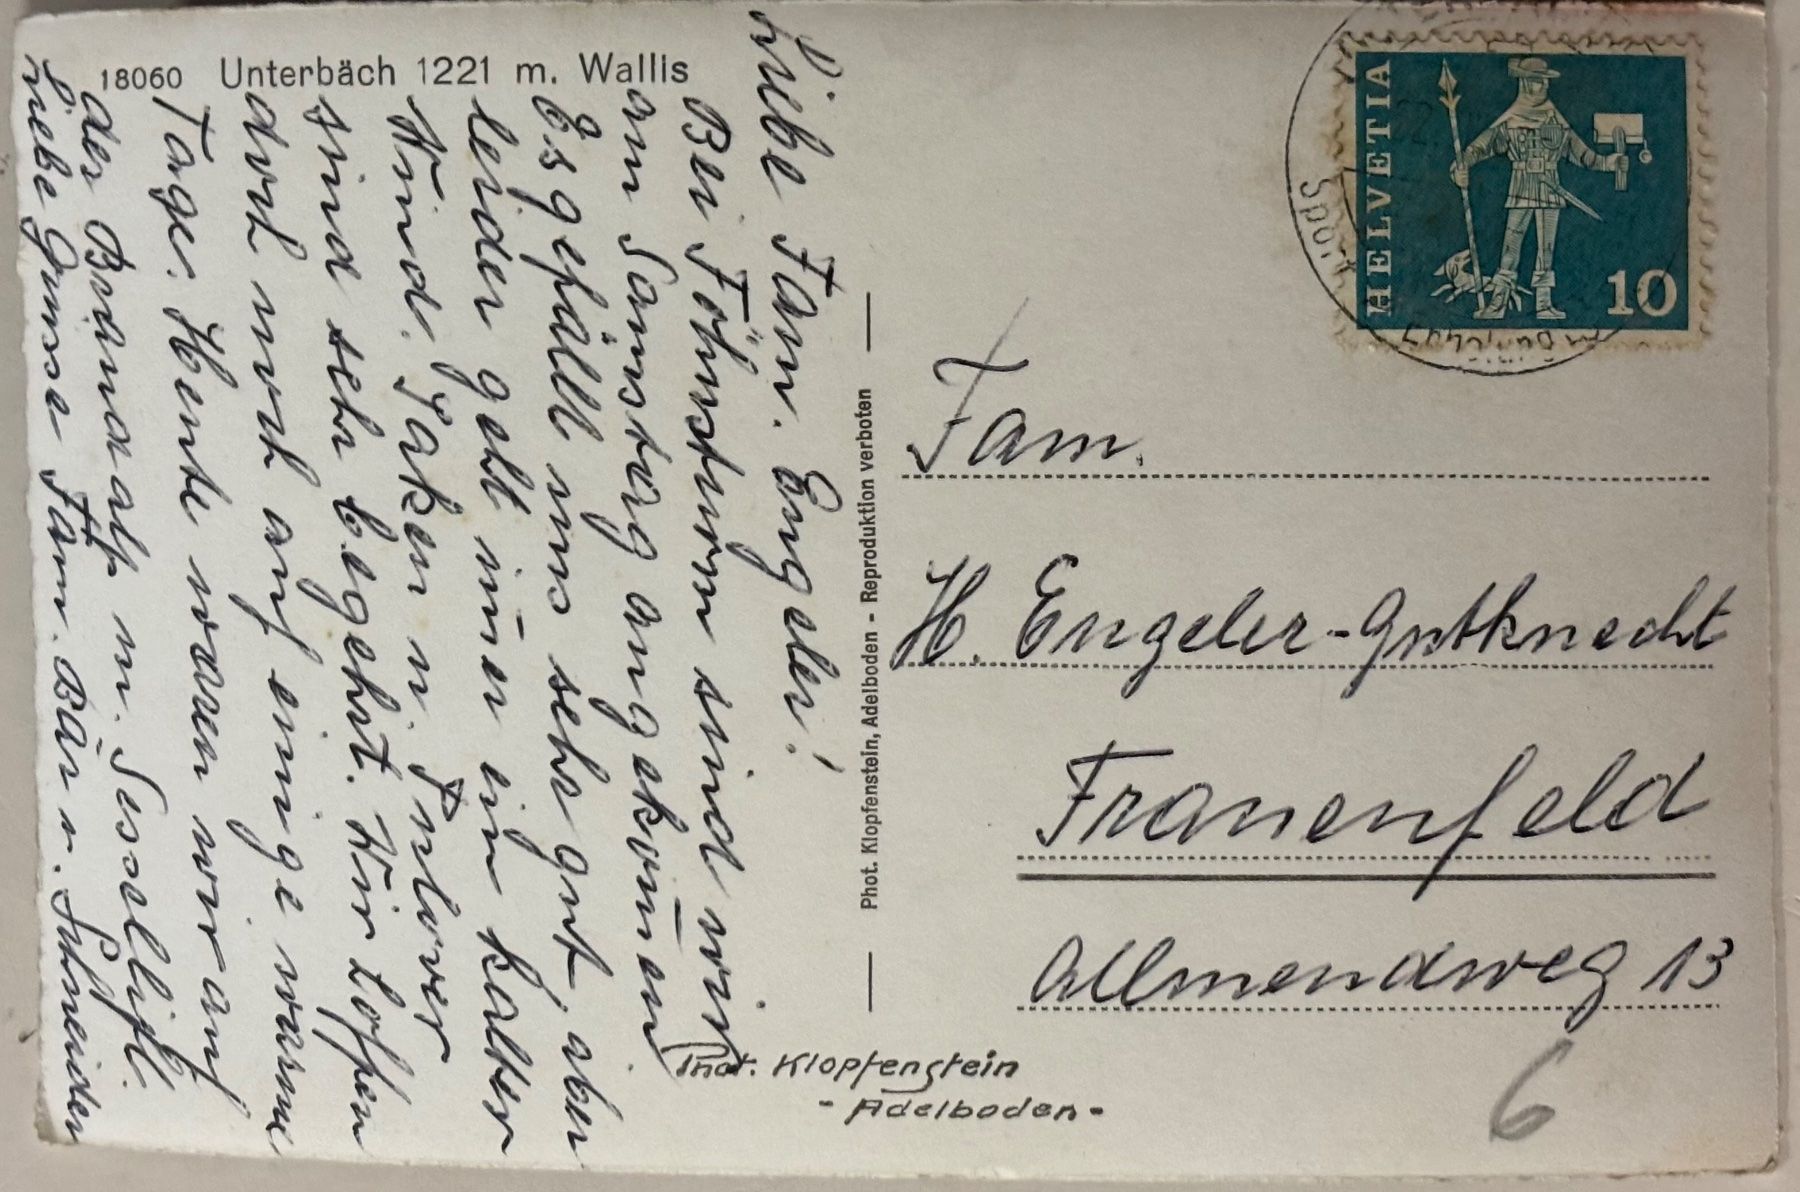 18060 Unterbäch 1221 m. Wallis
Liebe Fam. Engeler!
Bei Föhnsturm sind wir
am Samstag angekom̄en
Es gefällt uns sehr gut, aber
leider geht im̄er ein kalter
Wind. Jaken u. Pulover
sind sehr begehrt. Wir hoffen
doch noch auf einige warme
Tage. Heute waren wir auf
der Brandalp m. Sessellift.
Liebe Grüsse Fam. Bär u. Schneider
Phot. Klopfenstein, Adelboden - Reproduktion verboten
Phot. Klopfenstein
- Adelboden -
HELVETIA
10
Fam.
H. Engeler-Gutknecht
Frauenfeld
Allmendweg 13
6